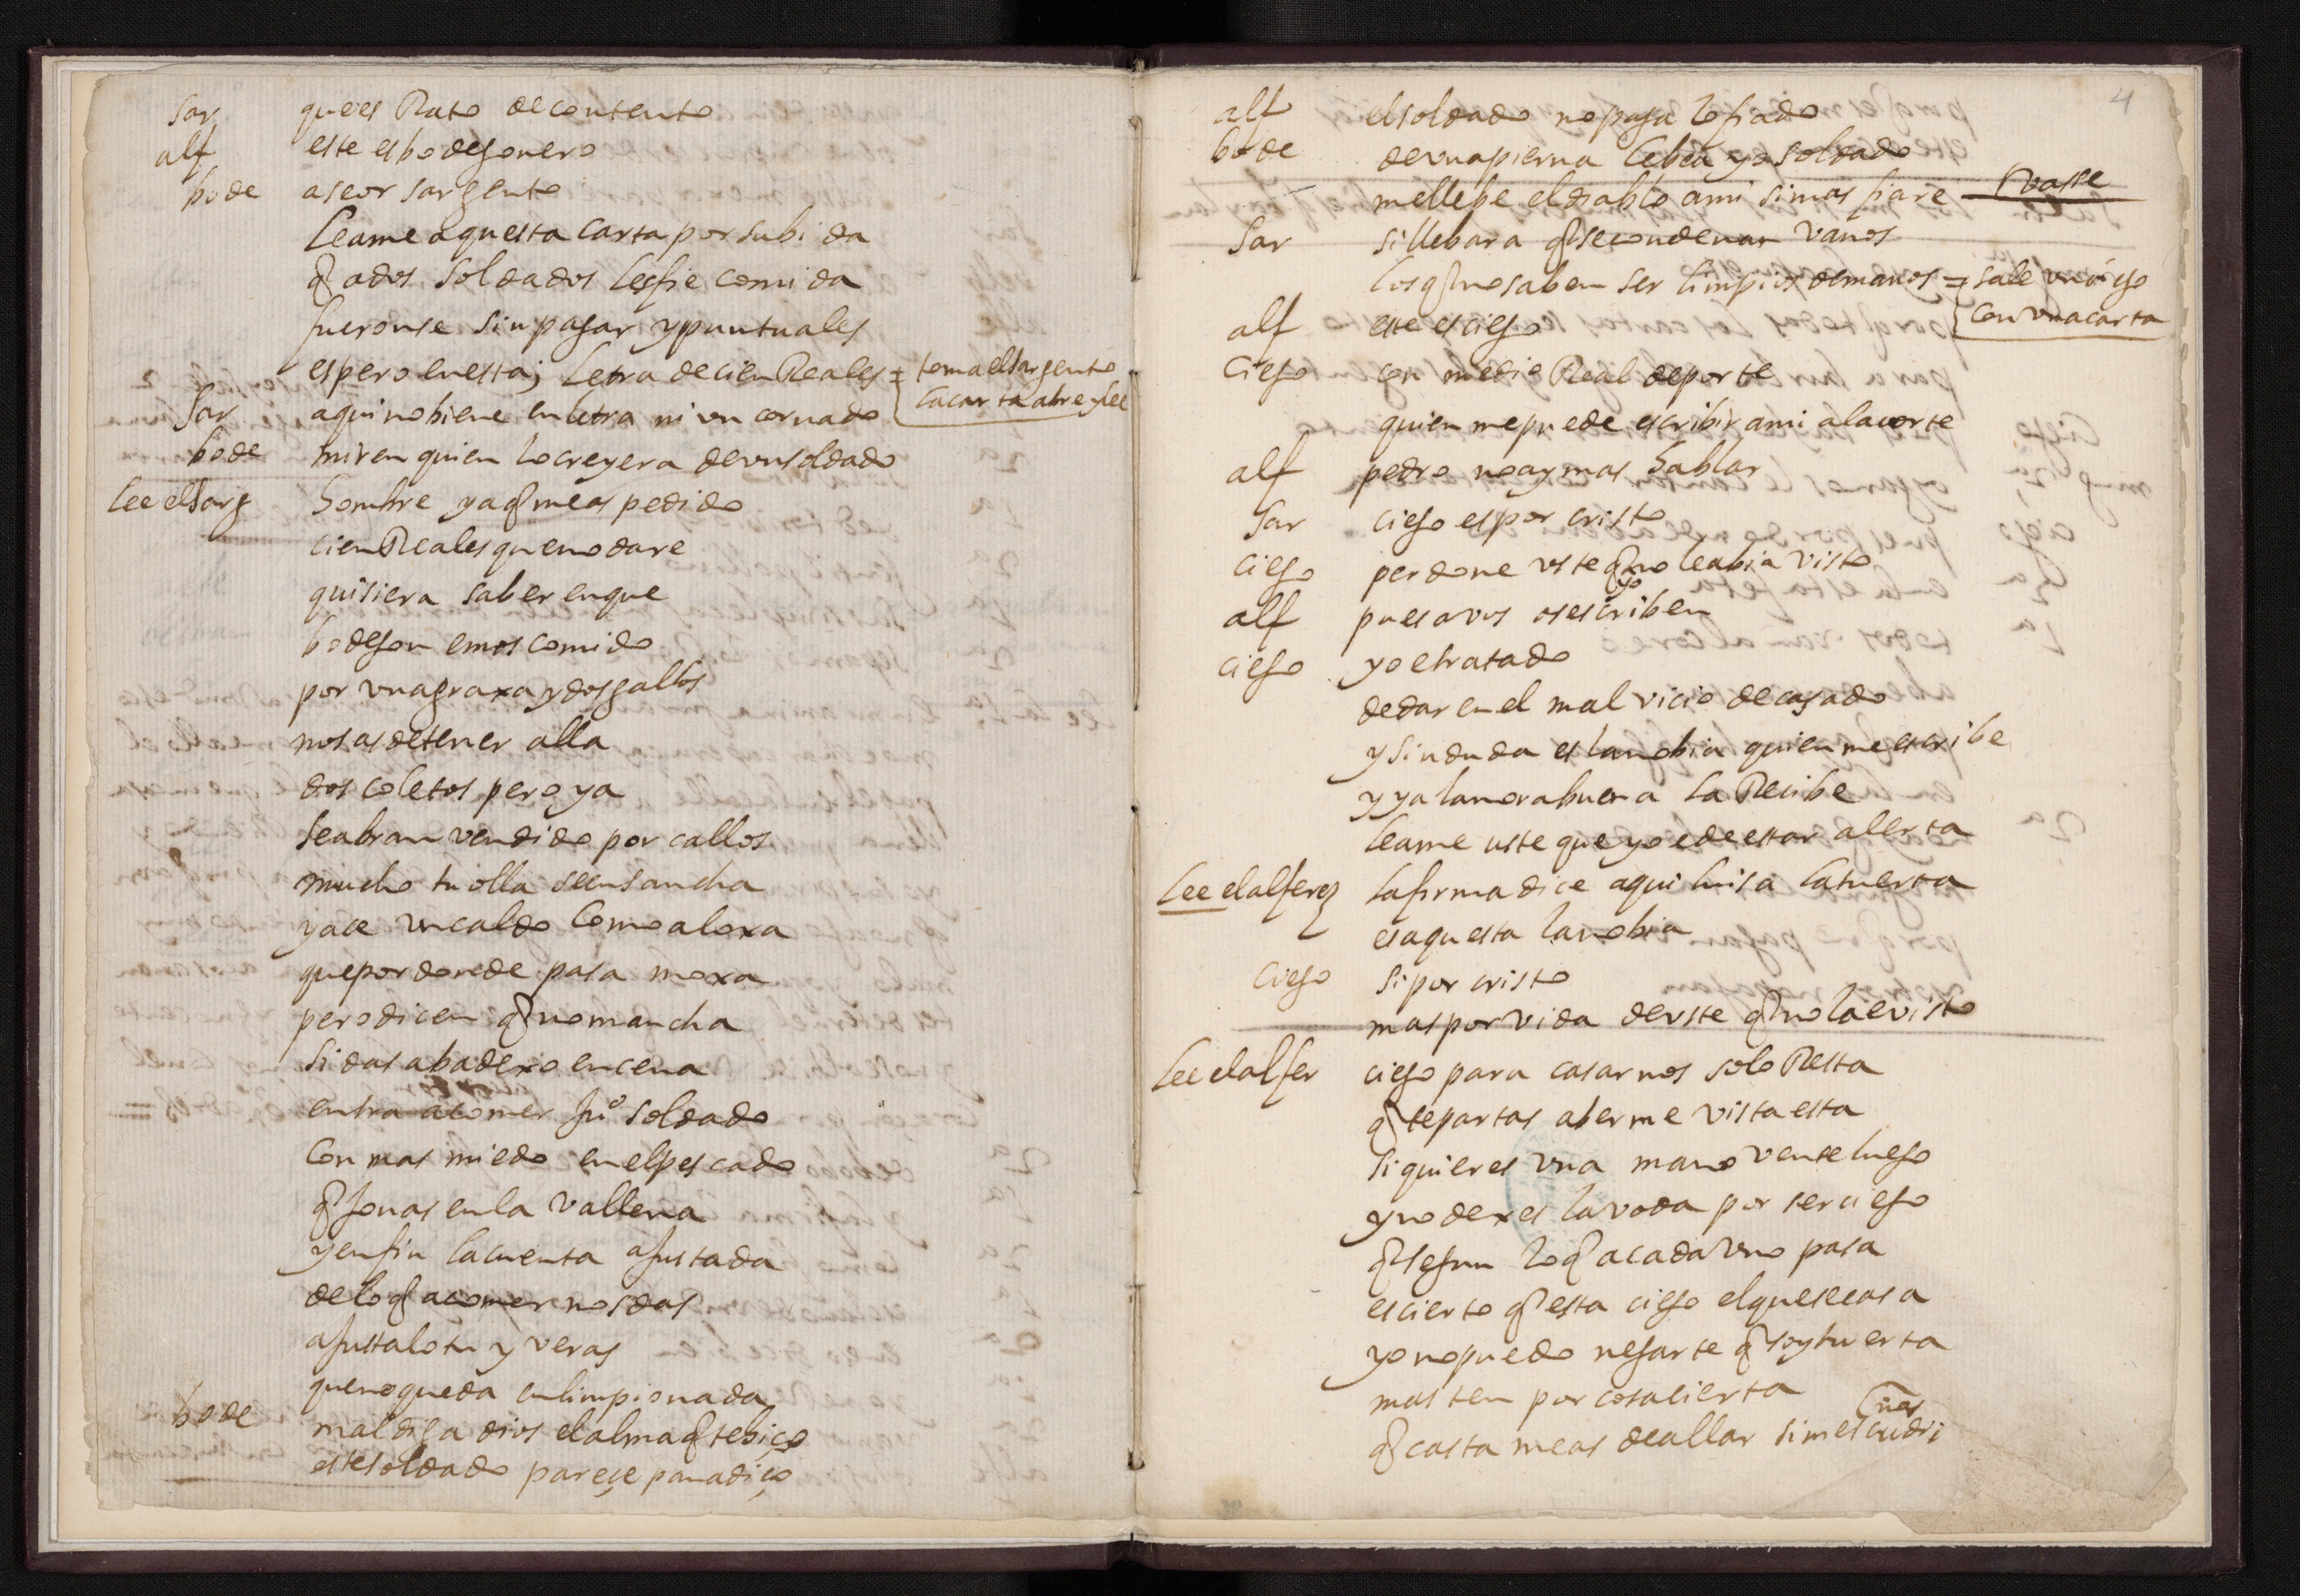 sar ques Rato de contento
alf este es bodegonero
bode a seor sargento
leame aquesta carta por su bida
q̃ a dos soldados les fie comida
fueronse sin pagar y puntuales
espero en esta; letra de cien Reales = toma el sargento
la carta abre y lee
sar aqui no biene en letra ni un cornado
bode miren quien lo creyera de un soldado
lee el sarg hombre ya q̃ me as pedido
cien Reales que no dare
quisiera saber en que
bodegon emos comido
por una graxa y dos gallos
nos as detener alla
dos coletos pero ya
se abran vendido por callos
mucho tu olla se ensancha
y ace un caldo como aloxa
que por donde pasa moxa
pero dicen q̃ no mancha
si das abadexo en cena
entra a comer soldado
con mas miedo en el pescado
q̃ jonas en la vallena
y en fin la cuenta ajustada
de lo q̃ a comer nos das
ajustalo tu y veras
que no queda en limpio nada
bode maldiga dios el alma q̃ te hiço
este soldado pareçe panadiço
4
alf el soldado no paga lo fiado
bode de una pierna lebea yo soldado
me llebe el diablo a mi si mas fiare Vasse
sar si llebara q̃ se condenan vanos
los q̃ no saben ser limpios de manos = sale un ciego
con una carta
alf este es ciego
ciego con medio Real de porte
quien me puede escribir a mi a la corte
alf pedro no ay mas hablar
sar ciego es por cristo
ciego perdone uste q̃ no le abia visto
alf pues a vos os escriben
ciego yo e tratado
de dar en el mal vicio de casado
y sin duda es la nobia quien me escribe
y ya la norabuena la Recibe
leame uste que yo e de estar alerta
lee el alferez la firma dice aqui luisa la tuerta
es aquesta la nobia
ciego si por cristo
mas por vida de uste q̃ no la e visto
lee el alfer ciego para casarnos solo Resta
q̃ te partas a berme vista esta
si quieres una mano vente luego
y no dexes la voda por ser ciego
q̃ segun lo q̃ a cada uno pasa
es cierto q̃ esta ciego el que se casa
yo no puedo negarte q̃ soy tuerta
mas ten por cosa cierta
q̃ casta me as de allar si me escudri
ñas